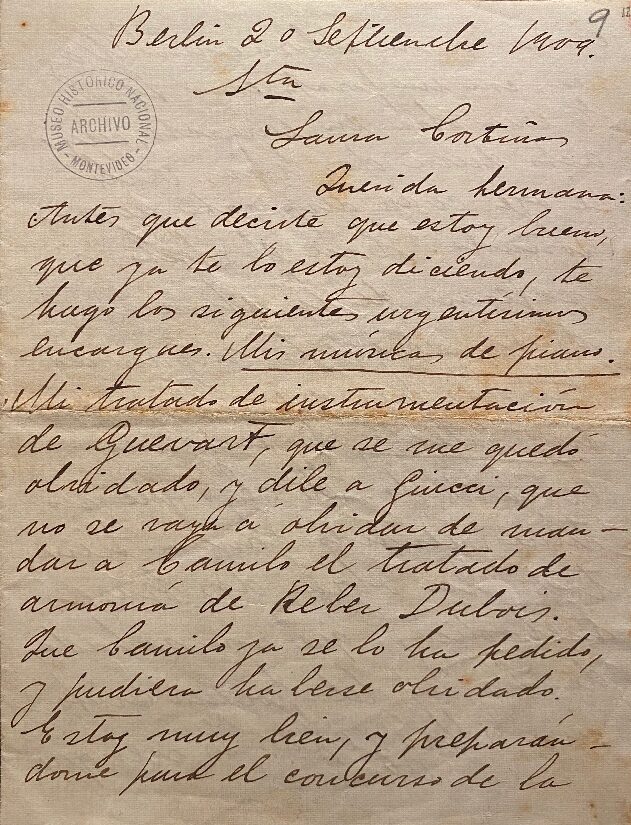 9
Berlin 20 Septiembre 1909.
MUSEO HISTORICO NACIONAL
ARCHIVO
- MONTEVIDEO -
Sta
Laura Cortinas
Querida hermana:
Antes que decirte que estoy bueno,
que ya te lo estoy diciendo, te
hago los siguientes urgentísimos
encargues. Mis músicas de piano.
Mi tratado de instrumentación
de Guevart, que se me quedó
olvidado, y dile a Giucci, que
no se vaya á olvidar de man-
dar a Camilo el tratado de
armonía de Reber Dubois.
Que Camilo ya se lo ha pedido,
y pudiera haberse olvidado.
Estoy muy bien, y preparán-
dome para el concurso de la